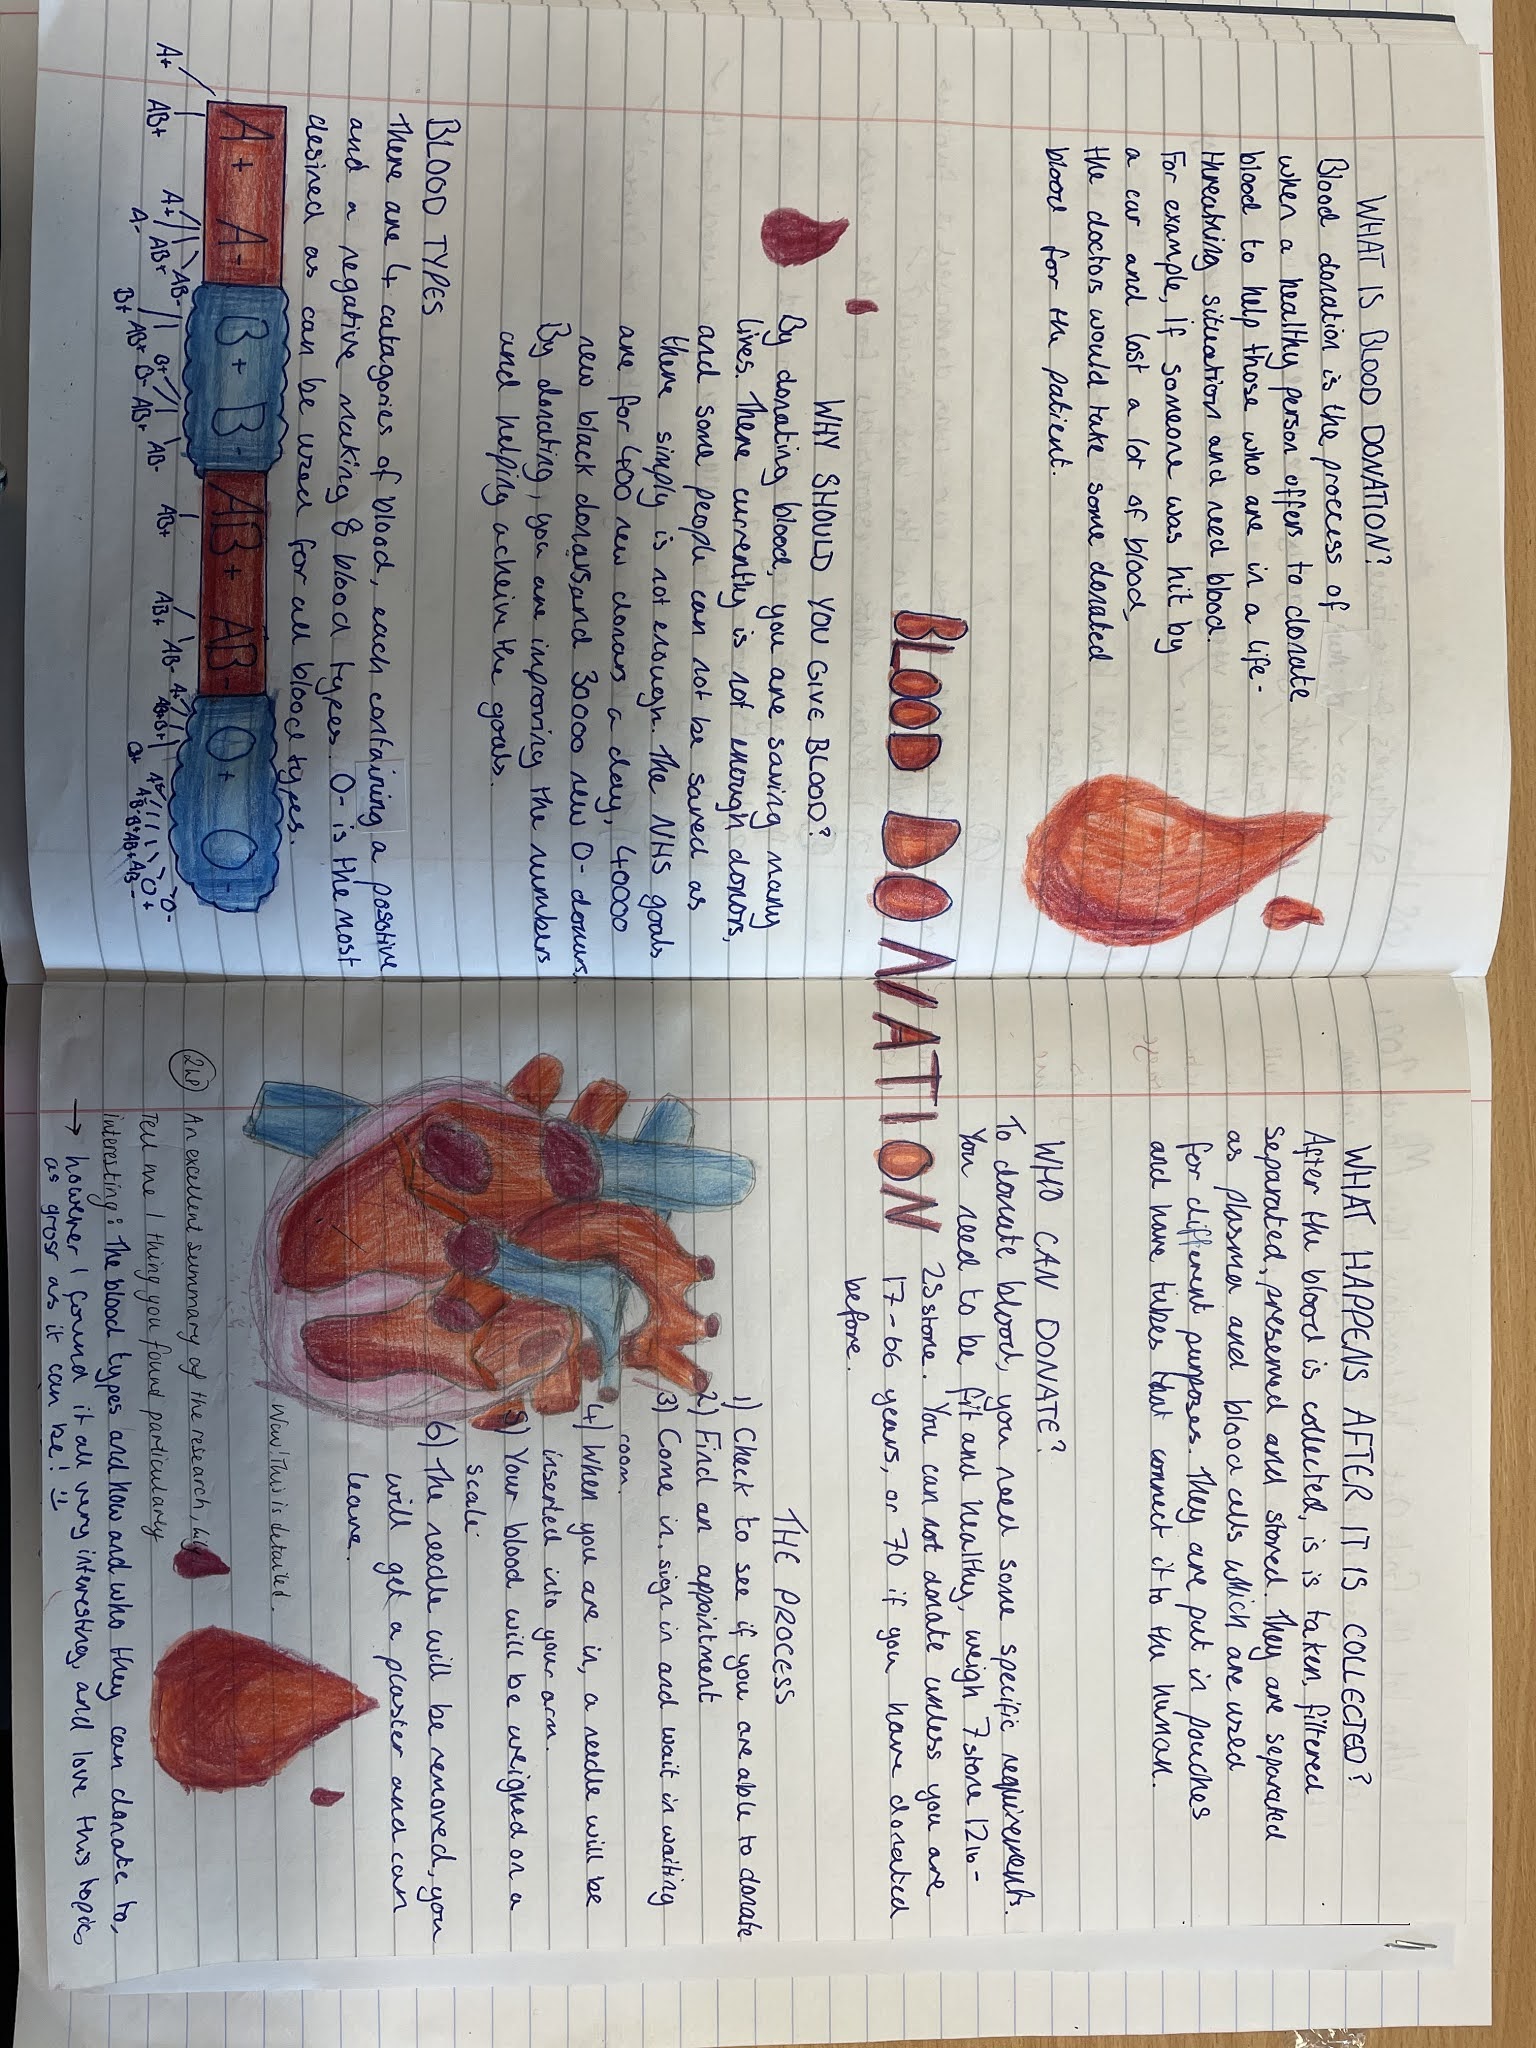 WHAT IS BLOOD DONATION?
Blood donation is the process of
when a healthy person offers to donate
blood to help those who are in a life-
threatning situation and need blood.
For example, if someone was hit by
a car and lost a lot of blood,
the doctors would take some donated
blood for the patient.
BLOOD DONATION
WHY SHOULD YOU GIVE BLOOD?
By donating blood, you are saving many
lives. There currently is not enough donors,
and some people can not be saved as
there simply is not enough. The NHS goals
are for 400 new donors a day, 40000
new black donors, and 30000 new O- donors.
By donating, you are improving the numbers
and helping acheive the goals.
BLOOD TYPES
There are 4 catagories of blood, each containing a positive
and a negative making 8 blood types. O- is the most
desired as can be used for all blood types.
A+ A- B+ B- AB+ AB- O+ O-
A+ AB+
A+ A- AB+ AB-
B+ AB+
B+ B- AB+ AB-
AB+
AB+ AB-
WHAT HAPPENS AFTER IT IS COLLECTED?
After the blood is collected, is is taken, filtered
separated, preserved and stored. They are separated
as plasmer and blood cells which are used
for different purposes. They are put in pouches
and have tubes that connect it to the human.
WHO CAN DONATE?
To donate blood, you need some specific requirements.
You need to be fit and healthy, weigh 7 stone 12lb -
25 stone. You can not donate unless you are
17-66 years, or 70 if you have donated
before.
THE PROCESS
1) Check to see if you are able to donate
2) Find an appointment
3) Come in, sign in and wait in waiting
room.
4) When you are in, a needle will be
inserted into your arm.
5) Your blood will be weighed on a
scale.
6) The needle will be removed, you
will get a plaster and can
leave.
Wow! This is detailed.
2hp An excellent summary of the research,
Tell me 1 thing you found particularly
interesting: The blood types and how and who they can donate to,
→ however I found it all very interesting, and love this topic,
as gross as it can be! :)